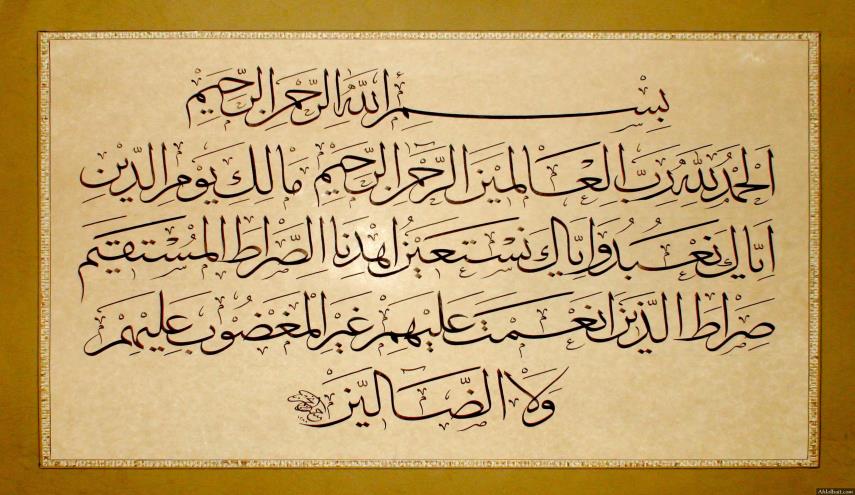 بِسْمِ اللَّهِ الرَّحْمٰنِ الرَّحِيْمِ
اَلْحَمْدُ لِلَّهِ رَبِّ الْعَالَمِيْنَ الرَّحْمٰنِ الرَّحِيْمِ مَالِكِ يَوْمِ الدِّيْنِ
اِيَّاكَ نَعْبُدُ وَاِيَّاكَ نَسْتَعِيْنُ اِهْدِنَا الصِّرَاطَ الْمُسْتَقِيْمَ
صِرَاطَ الَّذِيْنَ اَنْعَمْتَ عَلَيْهِمْ غَيْرِ الْمَغْضُوْبِ عَلَيْهِمْ
وَلَا الضَّالِّيْنَ
Ahlolbait.com